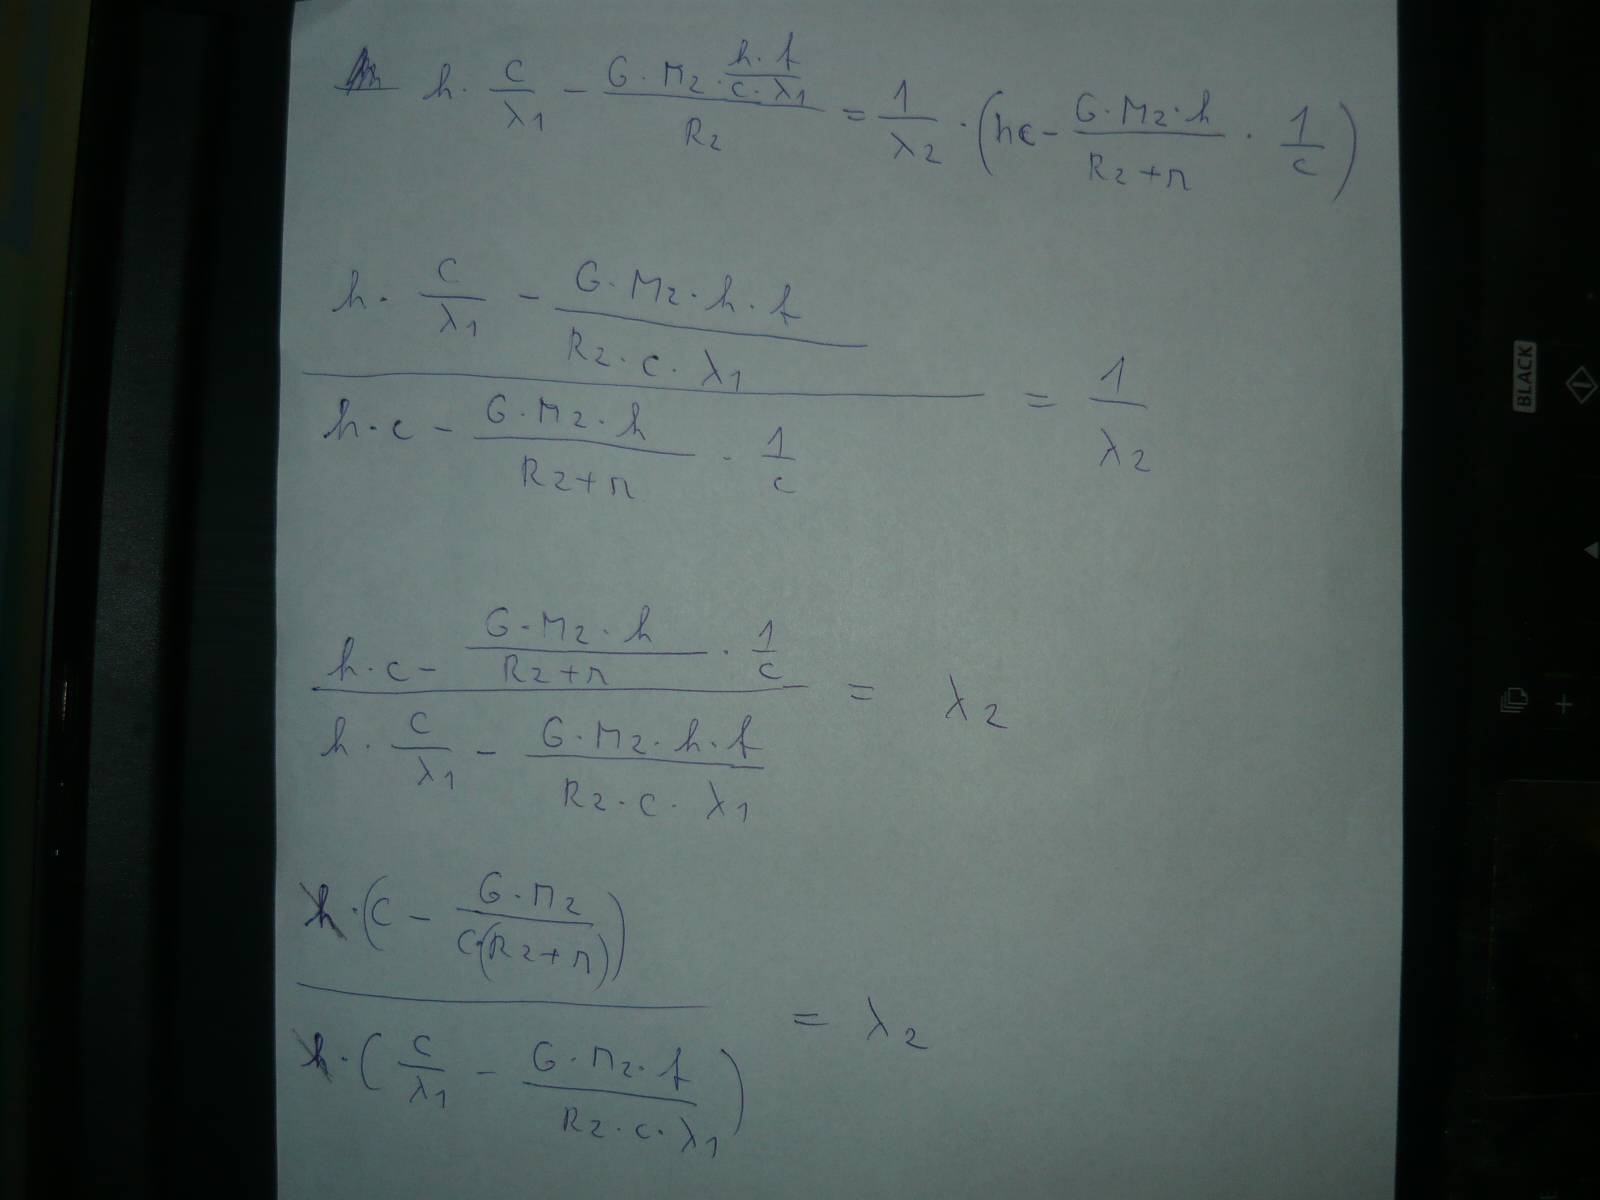 h · c/λ1 − (G · Mz · (h · f)/(c · λ1))/Rz = 1/λ2 · (hc − (G · Mz · h)/(Rz + r) · 1/c)
(h · c/λ1 − (G · Mz · h · f)/(Rz · c · λ1))/(h · c − (G · Mz · h)/(Rz + r) · 1/c) = 1/λ2
(h · c − (G · Mz · h)/(Rz + r) · 1/c)/(h · c/λ1 − (G · Mz · h · f)/(Rz · c · λ1)) = λ2
(h · (c − (G · Mz)/(c · (Rz + r))))/(h · (c/λ1 − (G · Mz · f)/(Rz · c · λ1))) = λ2
BLACK